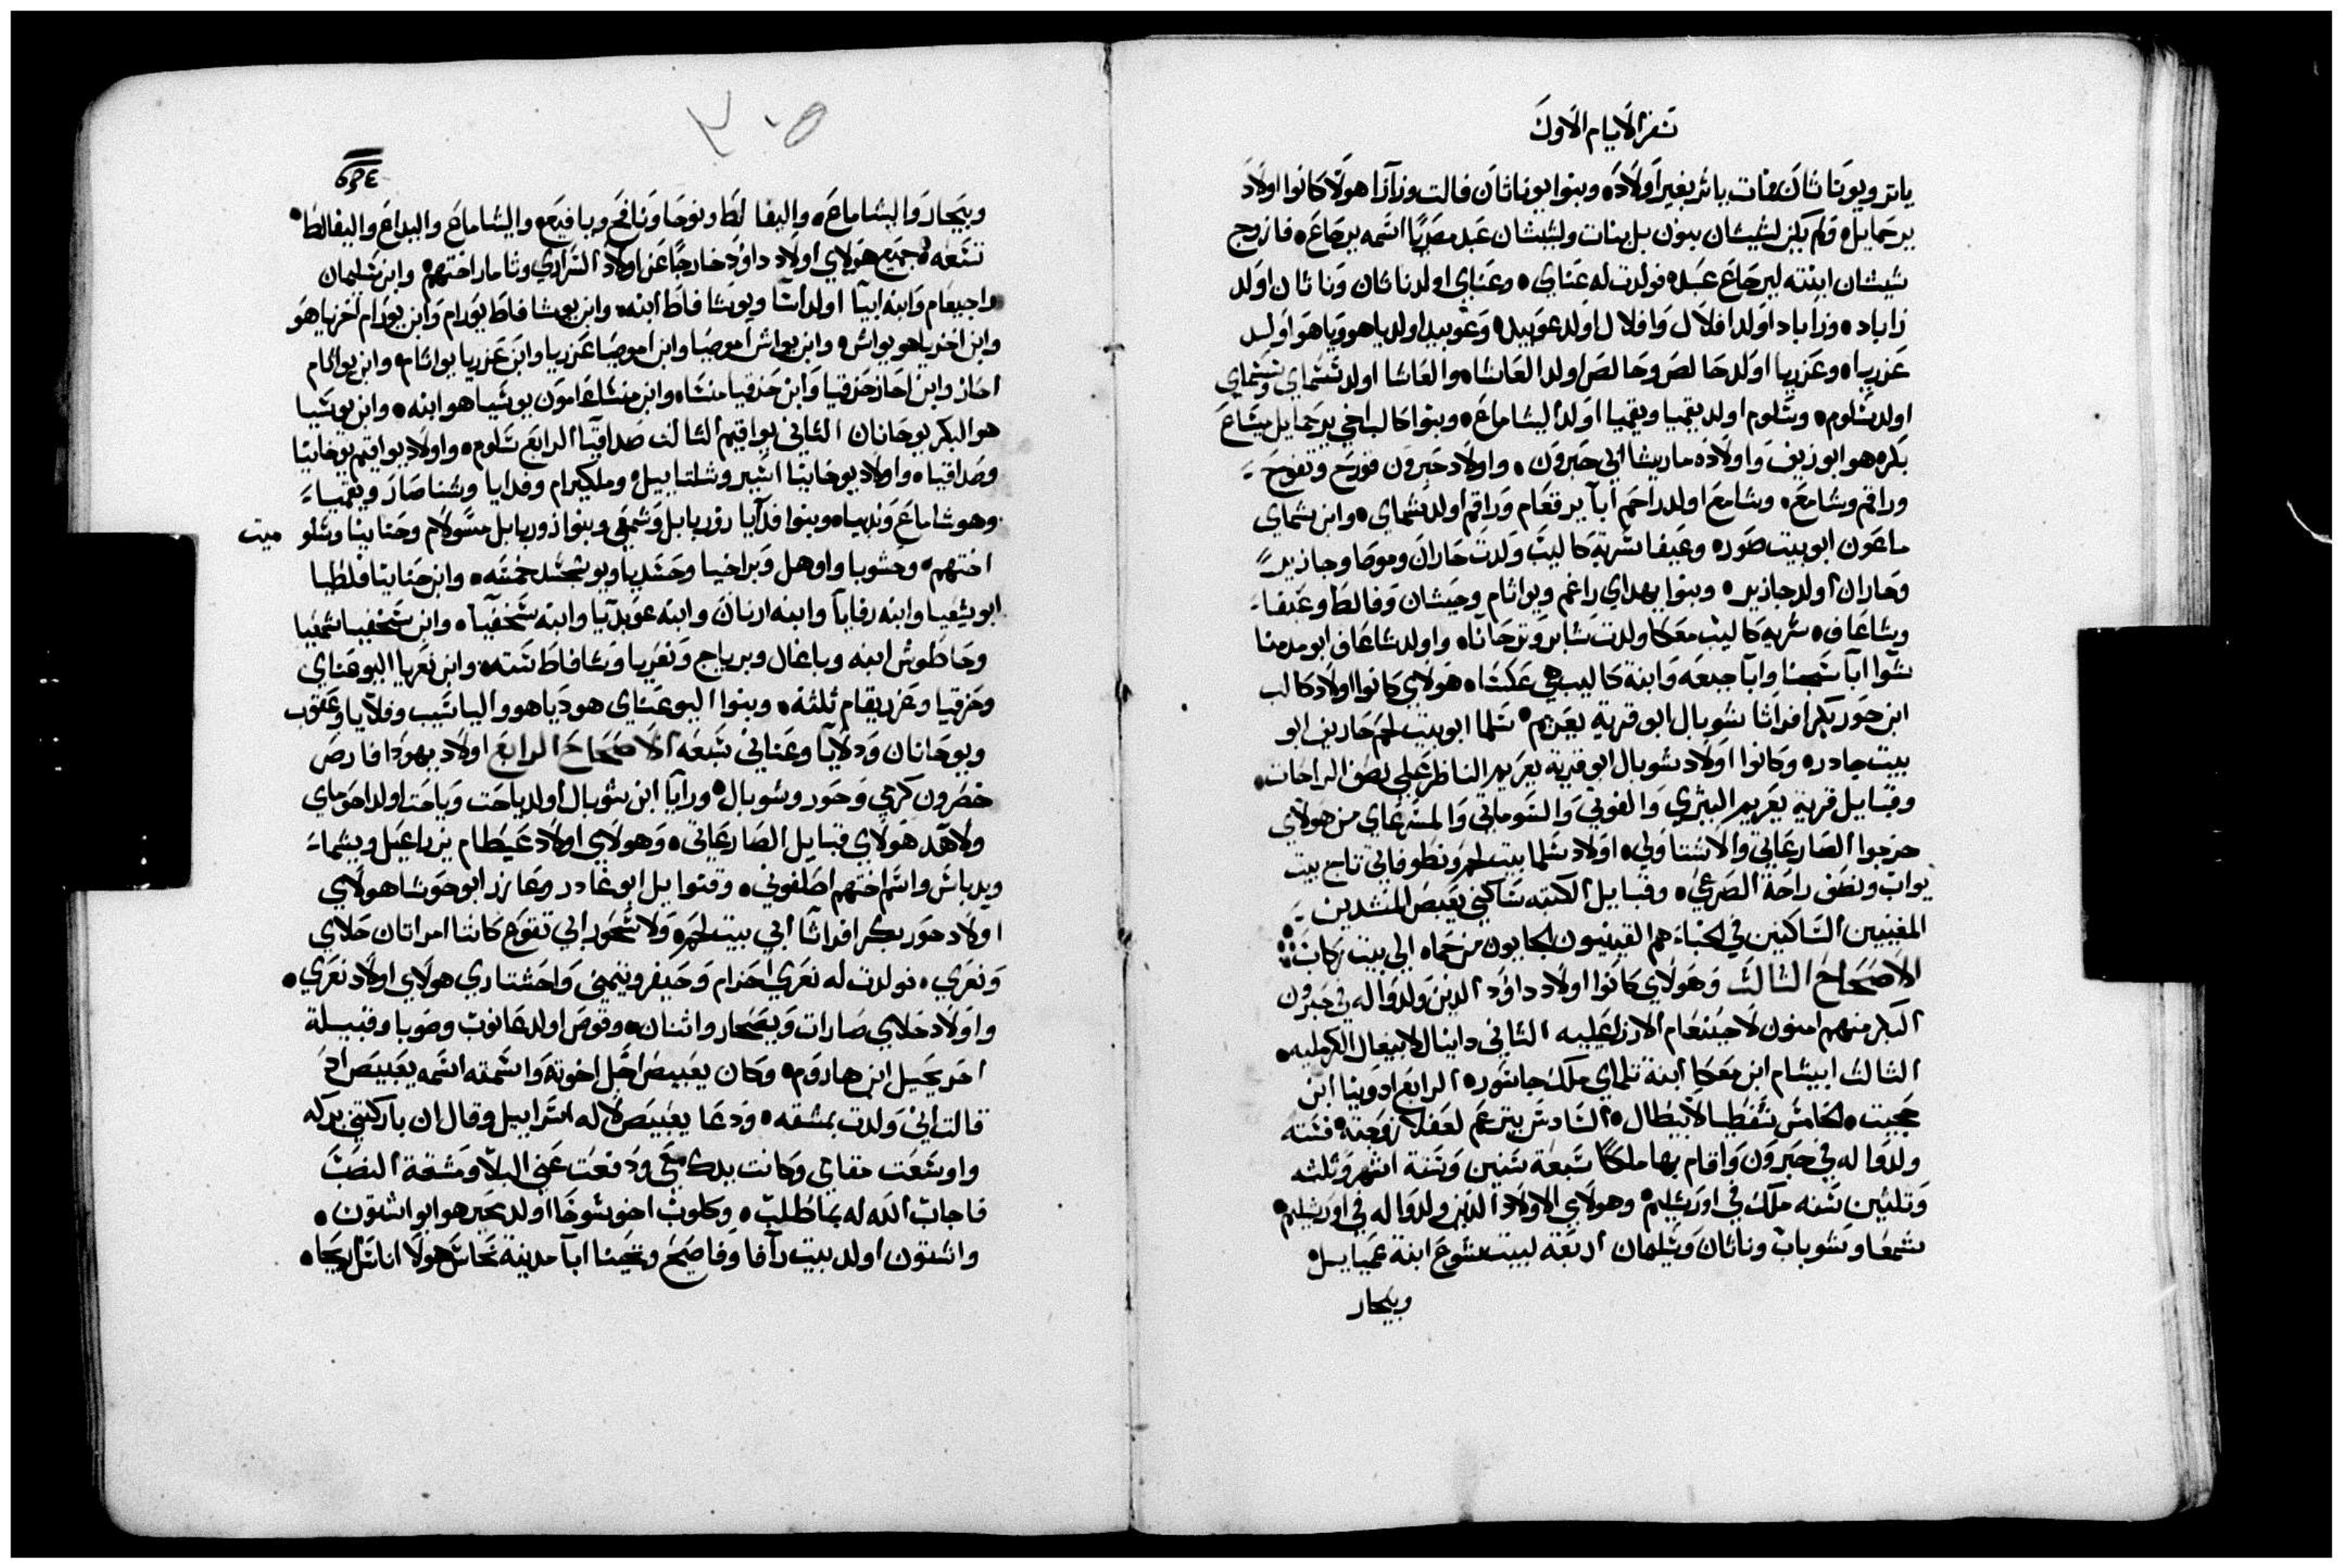 سفر الايام الاول
ياتر ويوناثان ومات ياثر بغير اولاده وبنوا يوناثان فالت وزازا هولا كانوا اولاد
يرحمايل ولم يكن لشيشان بنون بل بنات ولشيشان عبد مصريا اسمه يرحاع فازوج
شيشان ابنته ليرحاع عبده فولدت له عتاي وعتاي اولد ناثان وناثان اولد
زاباد وزاباد اولد افلال وافلال اولد عوبيد وعوبيد اولد ياهو وياهو اولد
عزريا وعزريا اولد حالص وحالص اولد العاشا والعاشا اولد سسماي وسسماي
اولد شلوم وشلوم اولد يقميا ويقميا اولد اليشاماع وبنوا كالب اخي يرحمايل ميشاع
بكره هو ابو زيف واولاده ماريشا ابي حبرون واولاد حبرون قورح وتفوح
وراقم وشامع وشامع اولد راحم ابا يرقعام وراقم اولد شماي وابن شماي
ماعون ابو بيت صور وعيفا سرية كاليب ولدت حاران وموصا وجازيز
وحاران اولد جازيز وبنوا يهداي راغم ويواثام وجيشان وفالط وعيفا
وشاعاف سرية كاليب معكا ولدت شابر وترحانا واولد شاعاف ابو مدمنا
شوا ابا مكبنا وابا جبعه وابنة كاليب هي عكسا هولاي كانوا اولاد كالب
ابن حور بكر افراثا شوبال ابو قرية يعريم سلما ابو بيت لحم حاريف ابو
بيت جادر وكانوا اولاد شوبال ابو قرية يعريم الناظر على نصف الراحات
وقبايل قرية يعريم اليثري والفوتي والشوماتي والمسرعاي من هولاي
خرجوا الصارعاتي والاشتاولي اولاد سلما بيت لحم ونطوفاتي تاج بيت
يواب ونصف راحة الصرعي وقبايل الكتبه ساكني يعبص المنشدين
المغنيين الساكنين في الخباء هم القينيون الجايون من حماه ابي بيت ركاب
الاصحاح الثالث وهولاي كانوا اولاد داوود الذين ولدوا له في حبرون
البكر منهم امنون لاحينعام الازراعيليه الثاني دانيال لابيغال الكرمليه
الثالث ابيشام ابن معكا ابنة تلماي ملك جاشور الرابع ادونيا ابن
حجيت الخامس شفطيا لابيطال السادس يترعم لعفلا زوجته فستة
ولدوا له في حبرون واقام بها ملكا سبعة سنين وستة اشهر وثلثه
وثلثين سنه ملك في اورشليم وهولاي الاولاد الذين ولدوا له في اورشليم
شمعا وشوباب وناثان وسليمان اربعة لبيت شوع ابنة عميايل
ويبحار
٣٠٥
ويبحار واليشاماع واليفالط ونوجا ونافج ويافيع واليشاماع واليداع واليفالط
تسعه جميع هولاي اولاد داوود خارجا عن اولاد السراري وثامار اختهم وابن سليمان
راجبعام وابنه ابيا اولد اسا ويوشافاط ابنه وابن يوشافاط يورام وابن يورام اخزياهو
وابن اخزياهو يواش وابن يواش اموصيا وابن اموصيا عزريا وابن عزريا يواثام وابن يواثام
احاز وابن احاز حزقيا وابن حزقيا منشا وابن منشا عامون يوشيا هو ابنه وابن يوشيا
هو البكر يوحانان الثاني يواقيم الثالث صداقيا الرابع شلوم واولاد يواقيم يوخانيا
وصداقيا واولاد يوخانيا اسير وشلتاييل وملكيرام وفدايا وشناصار ويقميا
وهوشاماع وندبيا وبنوا فدايا زوربابل وشمعي وبنوا زوربابل مسولام وحنانيا وشلوميت
اختهم وحشوبا واوهل وبراخيا وحسديا ويوشبحسد خمسه وابن حنانيا فلطيا
ابو يشعيا وابنه رفايا وابنه ارنان وابنه عوبديا وابنه شخنيا وابن شخنيا شمعيا
وحاطوش ابنه وياغال وبرياح ونعريا وشافاط سته وابن نعريا اليوعناي
وحزقيا وعزريقام ثلثه وبنوا اليوعناي هوديا هو والياشيب وفلايا وعقوب
ويوحانان ودلايا وعناني سبعه الاصحاح الرابع اولاد يهودا فارص
حصرون كرمي وحور وشوبال ورايا ابن شوبال اولد ياحت وياحت اولد احوماي
ولاهد هولاي قبايل الصارعاتي وهولاي اولاد عيطام يزراعيل ويشما
ويدباش واسم اختهم اصلفوني وفنوا يل ابو غادر وعازر ابو حوشا هولاي
اولاد حور بكر افراثا ابي بيت لحم ولاشحور ابي تقوع كانتا امراتان حلاي
ونعري فولدت له نعري احزام وحيفر وتيمني واحشتاري هولاي اولاد نعري
واولاد حلاي صارات ويصحار واثنان وقوص اولد عانوب وصوبا وقبيلة
احرحيل ابن هاروم وكان يعبيص اجل اخوته واسمته اسمه يعبيص اذ
قالت اني ولدت بمشقه ودعا يعبيص لاله اسراييل وقال ان باركتني بركه
واوسعت مقامي وكانت يدك معي ودفعت عني البلا ومشقة النصب
فاجاب الله له بما طلب وكلوب اخو شوخا اولد محير هو ابو اشتون
واشتون اولد بيت رافا وفاصح وتحينا ابا مدينة نحاش هولا اناس ريحا